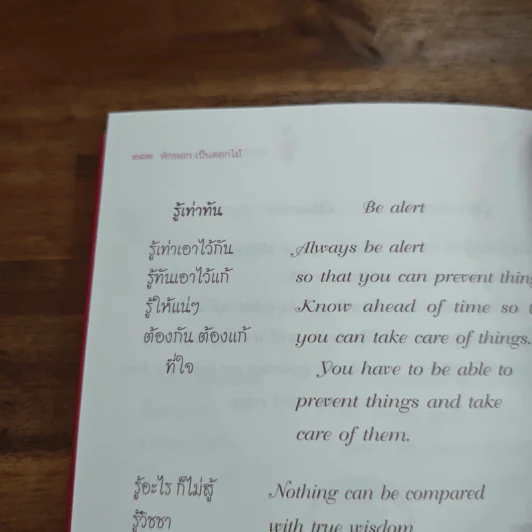 พักหอก เป็นดอกไม้
รู้เท่าทัน
รู้เท่าเอาไว้กัน
รู้ทันเอาไว้แก้
รู้ให้แน่ๆ
ต้องกัน ต้องแก้
ที่ใจ
รู้อะไร ก็ไม่สู้
รู้วิชชา
Be alert
Always be alert
so that you can prevent
Know ahead of time so
you can take care of things.
You have to be able to
prevent things and take
care of them.
Nothing can be compared
with true wisdom